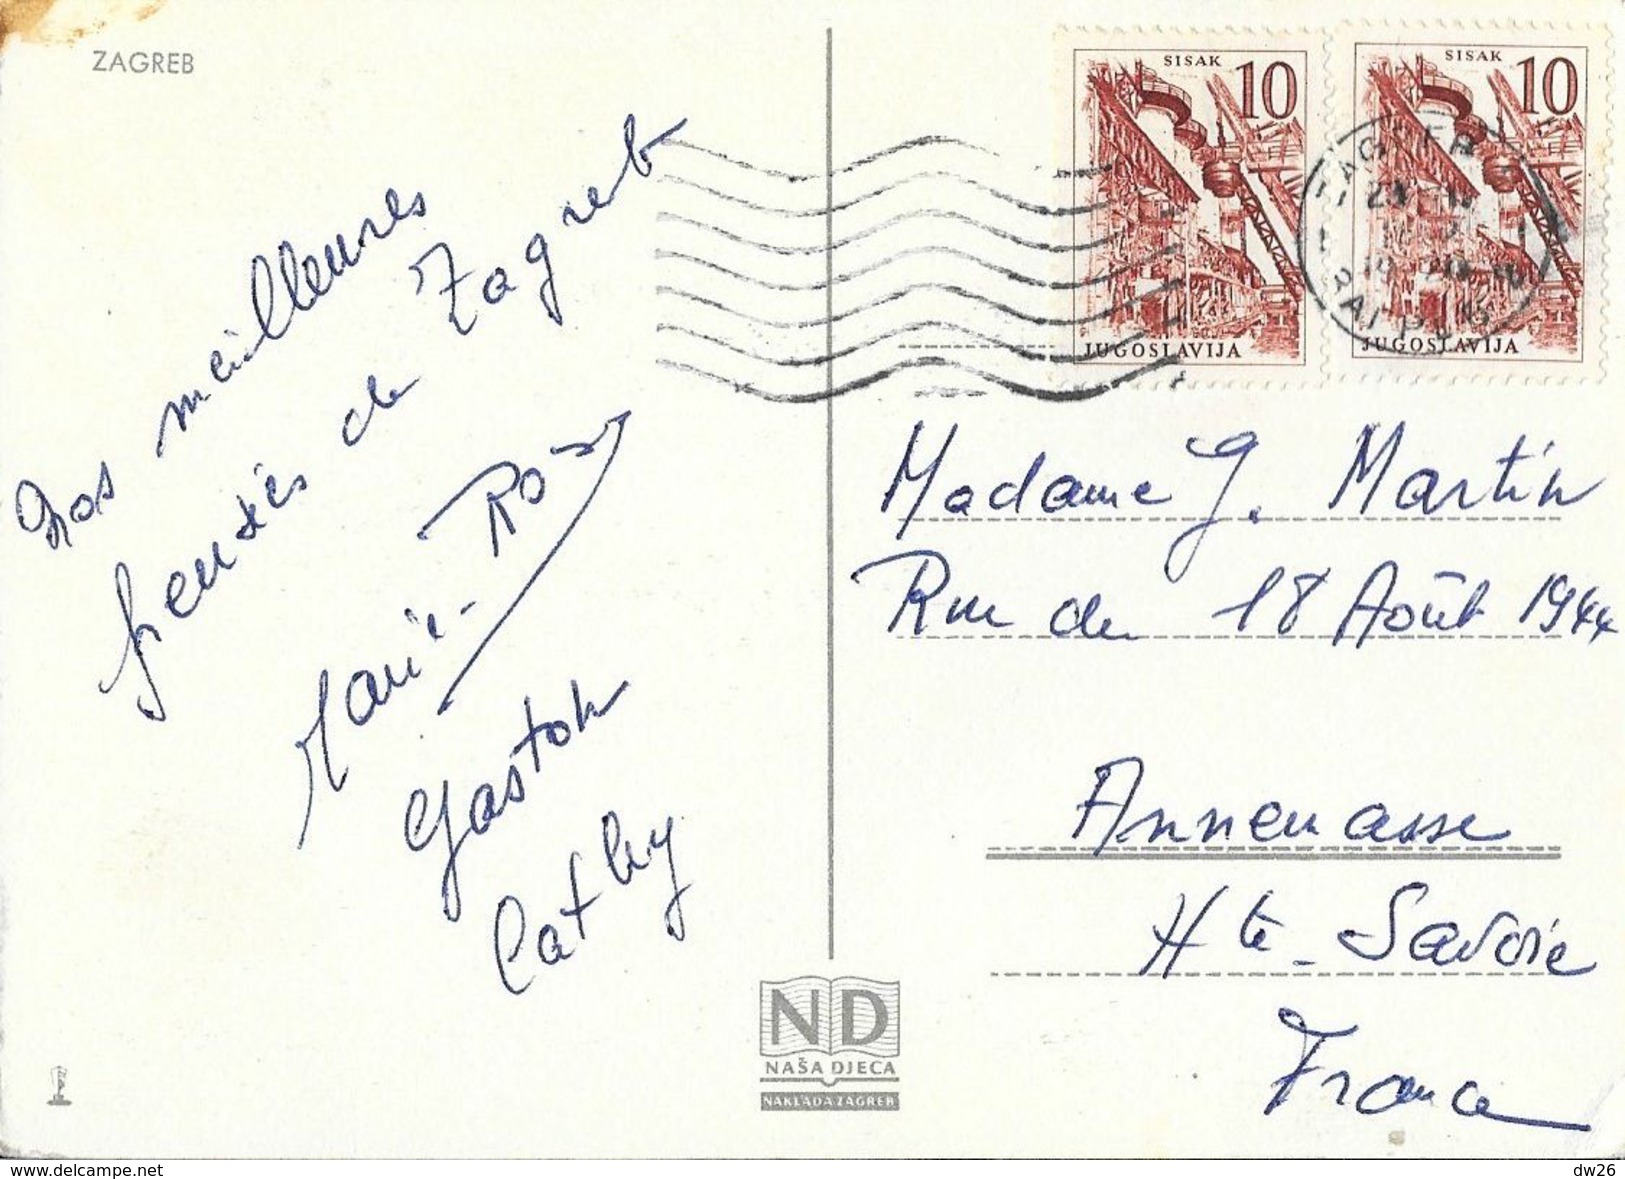 ZAGREB
Nos meilleures
pensées de Zagreb
Marie-Rose
Gaston
Cathy
SISAK 10
JUGOSLAVIJA
SISAK 10
JUGOSLAVIJA
Madame J. Martin
Rue du 18 Août 1944
Annemasse
Hte-Savoie
France
ND
NAŠA DJECA
NAKLADA ZAGREB
dw26
delcampe.net